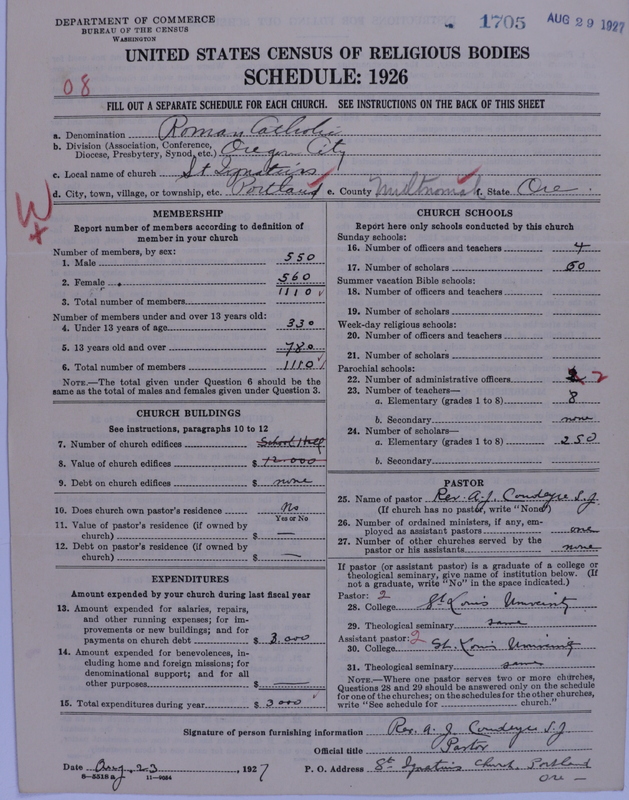 DEPARTMENT OF COMMERCE
BUREAU OF THE CENSUS
WASHINGTON
1705
AUG 29 1927
UNITED STATES CENSUS OF RELIGIOUS BODIES
SCHEDULE: 1926
08
FILL OUT A SEPARATE SCHEDULE FOR EACH CHURCH. SEE INSTRUCTIONS ON THE BACK OF THIS SHEET
a. Denomination Roman Catholic
b. Division (Association, Conference, Diocese, Presbytery, Synod, etc.) Oregon City
c. Local name of church St. Ignatius
d. City, town, village, or township, etc. Portland e. County Multnomah f. State Ore.
MEMBERSHIP
Report number of members according to definition of
member in your church
Number of members, by sex:
1. Male 550
2. Female 560
3. Total number of members 1110
Number of members under and over 13 years old:
4. Under 13 years of age 330
5. 13 years old and over 780
6. Total number of members 1110
NOTE.—The total given under Question 6 should be
same as the total of males and females given under Question 3.
CHURCH BUILDINGS
See instructions, paragraphs 10 to 12
7. Number of church edifices School Hall
8. Value of church edifices $ 12.000
9. Debt on church edifices $ none
10. Does church own pastor's residence No
Yes or No
11. Value of pastor's residence (if owned by
church) $ —
12. Debt on pastor's residence (if owned by
church) $ —
EXPENDITURES
Amount expended by your church during last fiscal year
13. Amount expended for salaries, repairs,
and other running expenses; for im-
provements or new buildings; and for
payments on church debt $ 3.000
14. Amount expended for benevolences, in-
cluding home and foreign missions; for
denominational support; and for all
other purposes $ —
15. Total expenditures during year $ 3000
CHURCH SCHOOLS
Report here only schools conducted by this church
Sunday schools:
16. Number of officers and teachers 4
17. Number of scholars 60
Summer vacation Bible schools:
18. Number of officers and teachers
19. Number of scholars
Week-day religious schools:
20. Number of officers and teachers
21. Number of scholars
Parochial schools:
22. Number of administrative officers 2
23. Number of teachers—
a. Elementary (grades 1 to 8) 8
b. Secondary none
24. Number of scholars—
a. Elementary (grades 1 to 8) 250
b. Secondary
PASTOR
25. Name of pastor Rev. A. J. S.J
(If church has no pastor, write "None")
26. Number of ordained ministers, if any, em-
ployed as assistant pastors one
27. Number of other churches served by the
pastor or his assistants none
If pastor (or assistant pastor) is a graduate of a college or
theological seminary, give name of institution below. (If
not a graduate, write "No" in the space indicated.)
Pastor: 2
28. College St Louis University
29. Theological seminary same
Assistant pastor: 2
30. College St. Louis University
31. Theological seminary same
NOTE.—Where one pastor serves two or more churches,
Questions 28 and 29 should be answered only on the schedule
for one of the churches; on the schedules for the other churches,
write "See schedule for church."
Signature of person furnishing information Rev. A. J. S.J
Official title Pastor
Date Aug. 23, 1927 P. O. Address St Ignatius Church, Portland
Ore —
11-9064